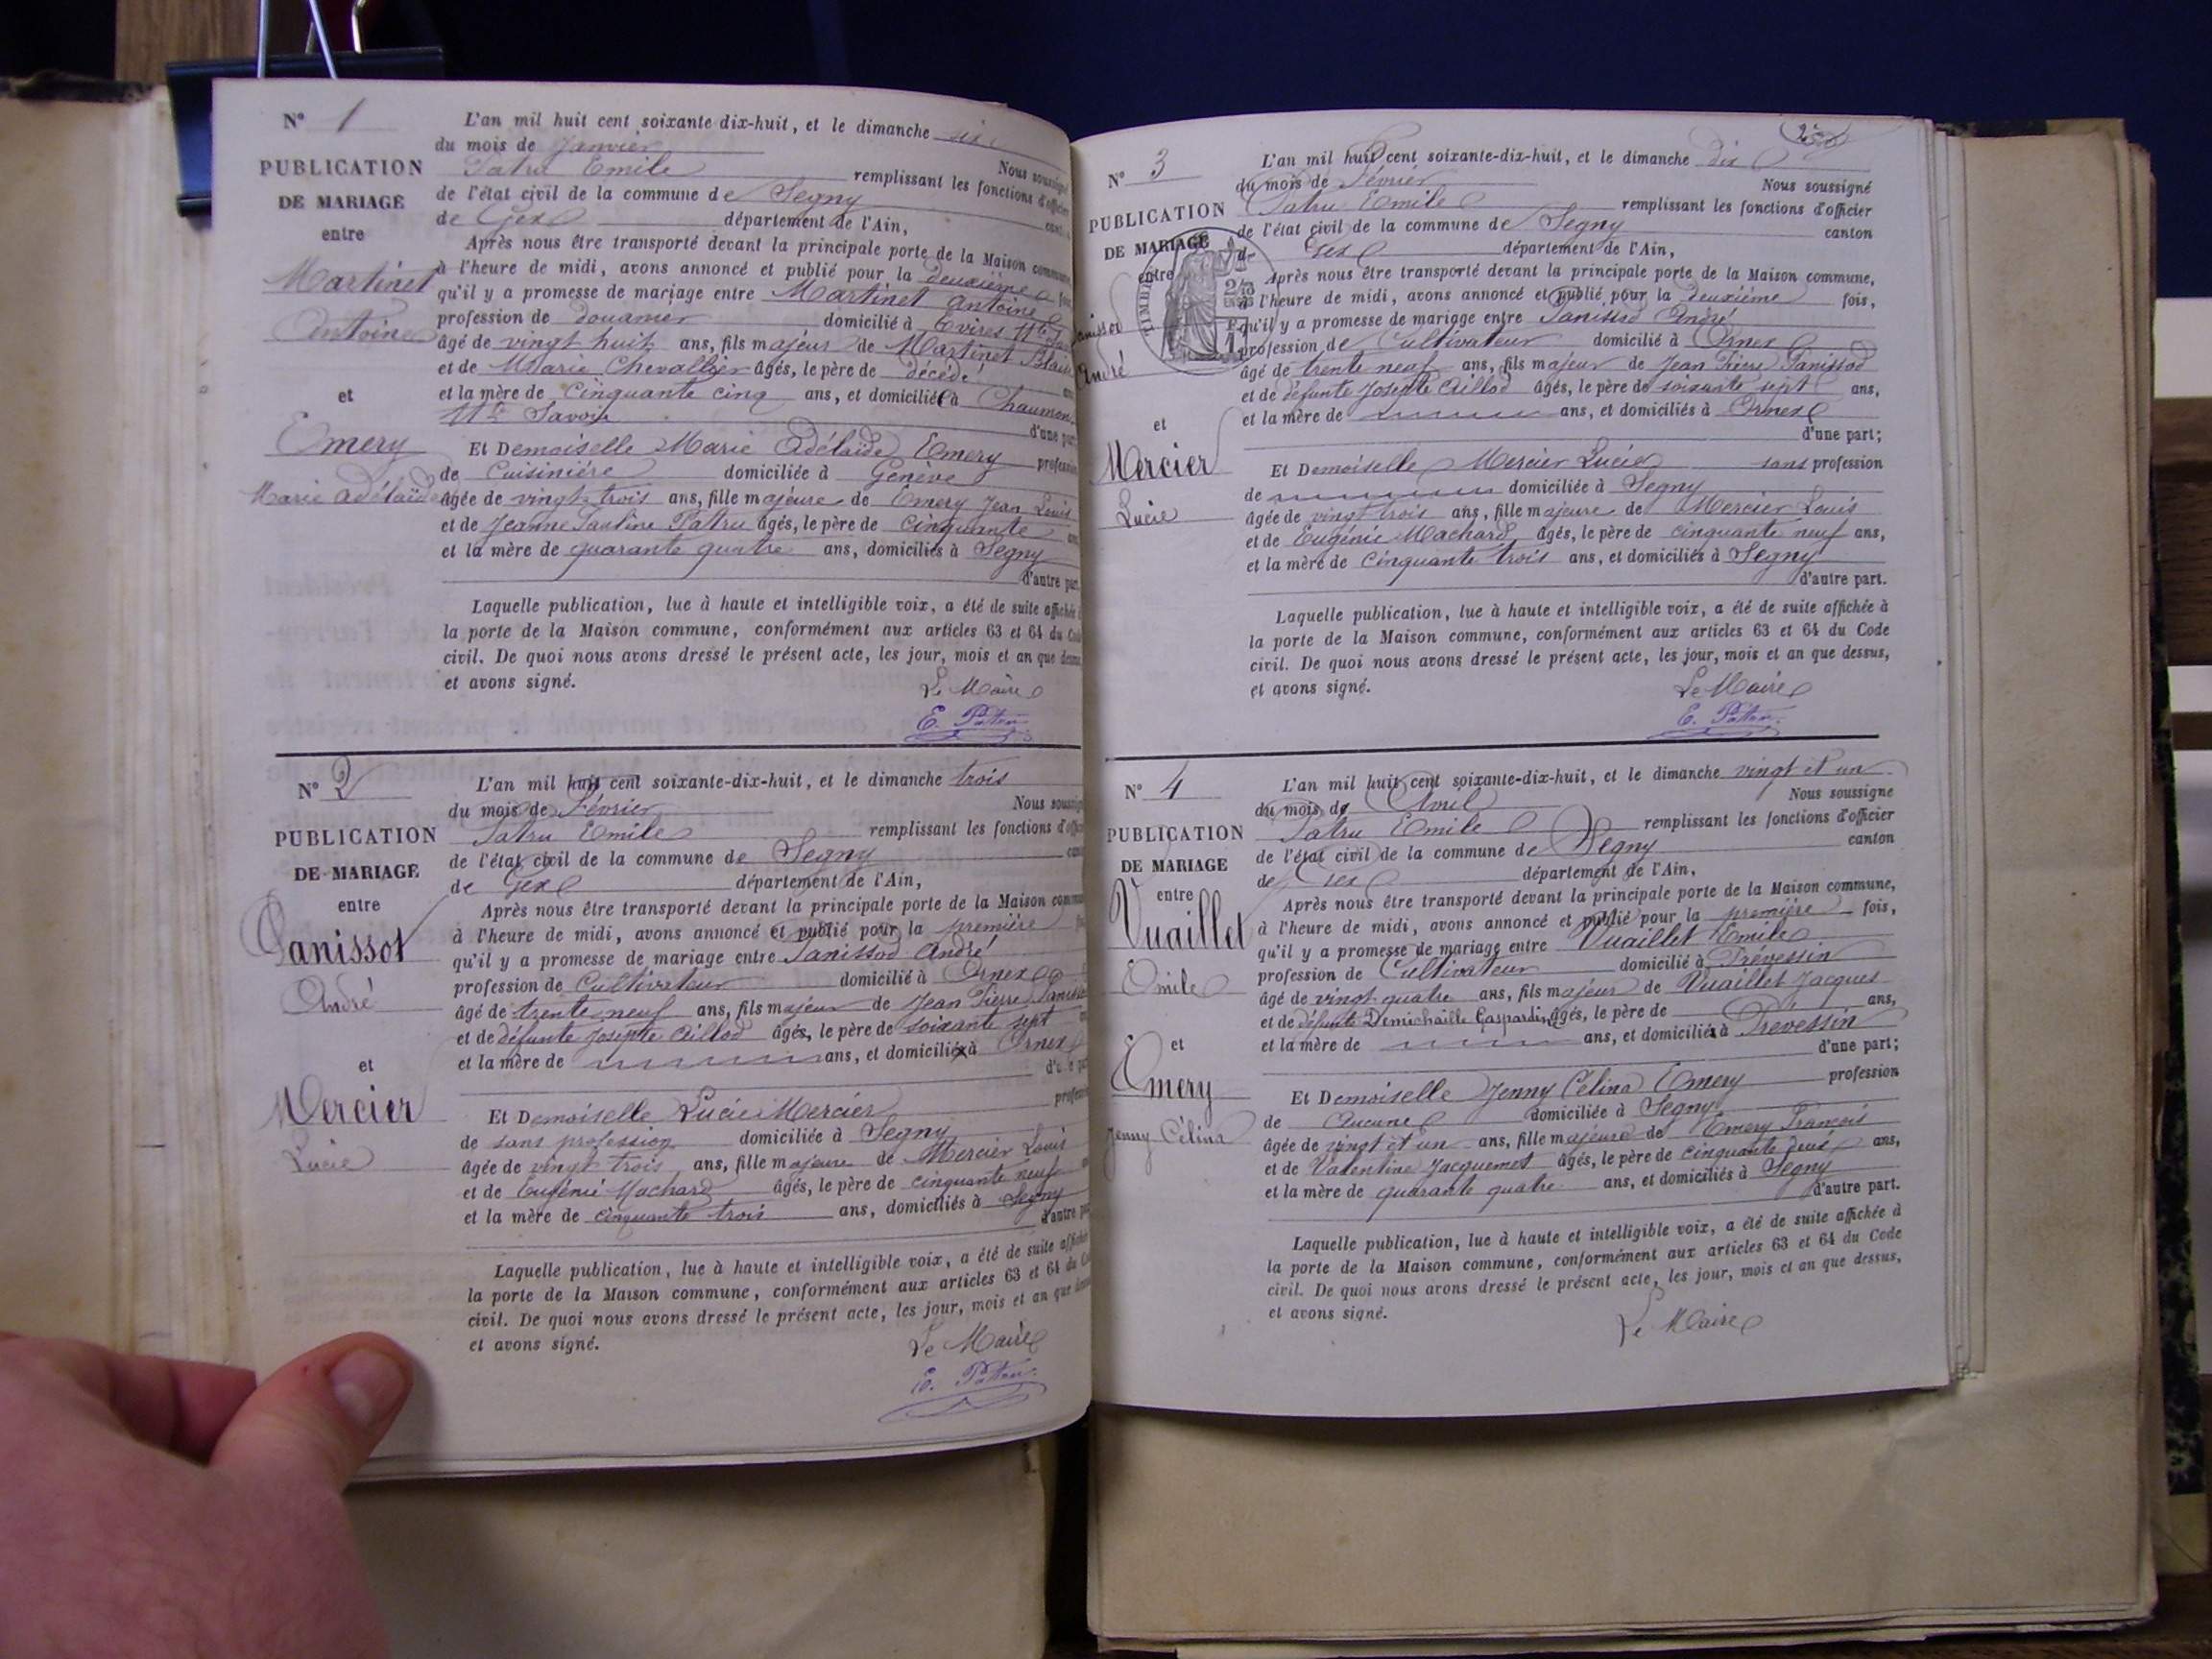 N° 1
PUBLICATION
DE MARIAGE
entre
Martinet
Antoine
et
Emery
Marie Adélaïde
L'an mil huit cent soixante dix-huit, et le dimanche six
du mois de Janvier Nous soussigné
Patru Emile remplissant les fonctions d'officier
de l'état civil de la commune de Segny
de Gex département de l'Ain,
Après nous être transporté devant la principale porte de la Maison commune,
à l'heure de midi, avons annoncé et publié pour la deuxième
qu'il y a promesse de mariage entre Martinet Antoine
profession de douanier domicilié à Evires Hte
âgé de vingt huit ans, fils majeur de Martinet
et de Marie Chevallier âgés, le père de décédé
et la mère de cinquante cinq ans, et domiciliée à
Hte Savoie
d'une part
Et Demoiselle Marie Adélaïde Emery profession
de Cuisinière domiciliée à Genève
âgée de vingt trois ans, fille majeure de Emery Jean Louis
et de Jeanne Pauline Patru âgés, le père de cinquante
et la mère de quarante quatre ans, domiciliés à Segny
d'autre part
Laquelle publication, lue à haute et intelligible voix, a été de suite affichée à
la porte de la Maison commune, conformément aux articles 63 et 64 du Code
civil. De quoi nous avons dressé le présent acte, les jour, mois et an que dessus,
et avons signé.
Le Maire
E. Patru
N° 2
PUBLICATION
DE MARIAGE
entre
Panissot
André
et
Mercier
Lucie
L'an mil huit cent soixante-dix-huit, et le dimanche trois
du mois de Février Nous soussigné
Patru Emile remplissant les fonctions d'officier
de l'état civil de la commune de Segny
de Gex département de l'Ain,
Après nous être transporté devant la principale porte de la Maison commune
à l'heure de midi, avons annoncé et publié pour la première
qu'il y a promesse de mariage entre Panissod André
profession de Cultivateur domicilié à Ornex
âgé de trente neuf ans, fils majeur de Jean Pierre Panissod
et de défunte Josephte âgés, le père de soixante sept
et la mère de ans, et domiciliés à Ornex
Et Demoiselle Lucie Mercier profession
de sans profession domiciliée à Segny
âgée de vingt trois ans, fille majeure de Mercier Louis
et de Eugénie Machard âgés, le père de cinquante neuf
et la mère de cinquante trois ans, domiciliés à Segny
d'autre part
Laquelle publication, lue à haute et intelligible voix, a été de suite affichée
la porte de la Maison commune, conformément aux articles 63 et 64 du Code
civil. De quoi nous avons dressé le présent acte, les jour, mois et an que dessus
et avons signé.
Le Maire
E. Patru
N° 3
PUBLICATION
DE MARIAGE
entre
André
et
Mercier
Lucie
L'an mil huit cent soixante-dix-huit, et le dimanche dix
du mois de Février Nous soussigné
Patru Emile remplissant les fonctions d'officier
de l'état civil de la commune de Segny canton
de Gex département de l'Ain,
Après nous être transporté devant la principale porte de la Maison commune,
à l'heure de midi, avons annoncé et publié pour la deuxième fois,
qu'il y a promesse de mariage entre Panissod André
profession de Cultivateur domicilié à Ornex
âgé de trente neuf ans, fils majeur de Jean Pierre Panissod
et de défunte Josephte âgés, le père de soixante sept ans,
et la mère de ans, et domiciliés à Ornex
d'une part;
Et Demoiselle Mercier Lucie sans profession
de domiciliée à Segny
âgée de vingt trois ans, fille majeure de Mercier Louis
et de Eugénie Machard âgés, le père de cinquante neuf ans,
et la mère de cinquante trois ans, et domiciliés à Segny
d'autre part.
Laquelle publication, lue à haute et intelligible voix, a été de suite affichée à
la porte de la Maison commune, conformément aux articles 63 et 64 du Code
civil. De quoi nous avons dressé le présent acte, les jour, mois et an que dessus,
et avons signé.
Le Maire
E. Patru
N° 4
PUBLICATION
DE MARIAGE
entre
Vuaillet
Emile
et
Emery
Jenny Célina
L'an mil huit cent soixante-dix-huit, et le dimanche vingt et un
du mois de Avril Nous soussigné
Patru Emile remplissant les fonctions d'officier
de l'état civil de la commune de Segny canton
de Gex département de l'Ain,
Après nous être transporté devant la principale porte de la Maison commune,
à l'heure de midi, avons annoncé et publié pour la première fois,
qu'il y a promesse de mariage entre Vuaillet Emile
profession de Cultivateur domicilié à Prévessin
âgé de vingt quatre ans, fils majeur de Vuaillet Jacques
et de défunte Demichaille Gaspardine âgés, le père de ans,
et la mère de ans, et domiciliés à Prévessin
d'une part;
Et Demoiselle Jenny Célina Emery profession
de Aucune domiciliée à Segny
âgée de vingt et un ans, fille majeure de Emery François
et de Valentine Jacquemet âgés, le père de cinquante deux ans,
et la mère de quarante quatre ans, et domiciliés à Segny
d'autre part.
Laquelle publication, lue à haute et intelligible voix, a été de suite affichée à
la porte de la Maison commune, conformément aux articles 63 et 64 du Code
civil. De quoi nous avons dressé le présent acte, les jour, mois et an que dessus,
et avons signé.
Le Maire